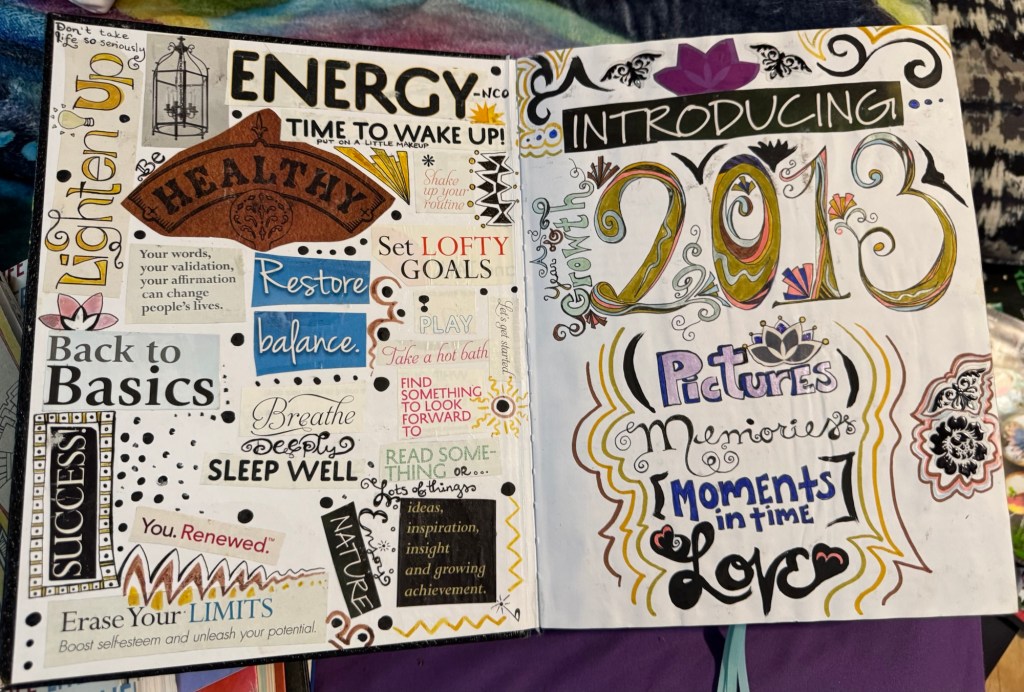 Don't take
life so seriously
Lighten up
ENERGY
-NCO
TIME TO WAKE UP!
PUT ON A LITTLE MAKEUP
Be
HEALTHY
Shake
up your
routine
Your words,
your validation,
your affirmation
can change
people's lives.
Restore
balance.
Set LOFTY
GOALS
PLAY
Let's get started
Take a hot bath
Back to
Basics
Breathe
Deeply
SLEEP WELL
FIND
SOMETHING
TO LOOK
FORWARD
TO
READ SOME-
THING OR...
Lots of things
SUCCESS
You. Renewed.™
Enjoy
NATURE
ideas,
inspiration,
insight
and growing
achievement.
Erase Your LIMITS
Boost self-esteem and unleash your potential.
INTRODUCING
2013
Year of
Growth
Pictures
Memories
[MOMENTS]
in time
Love